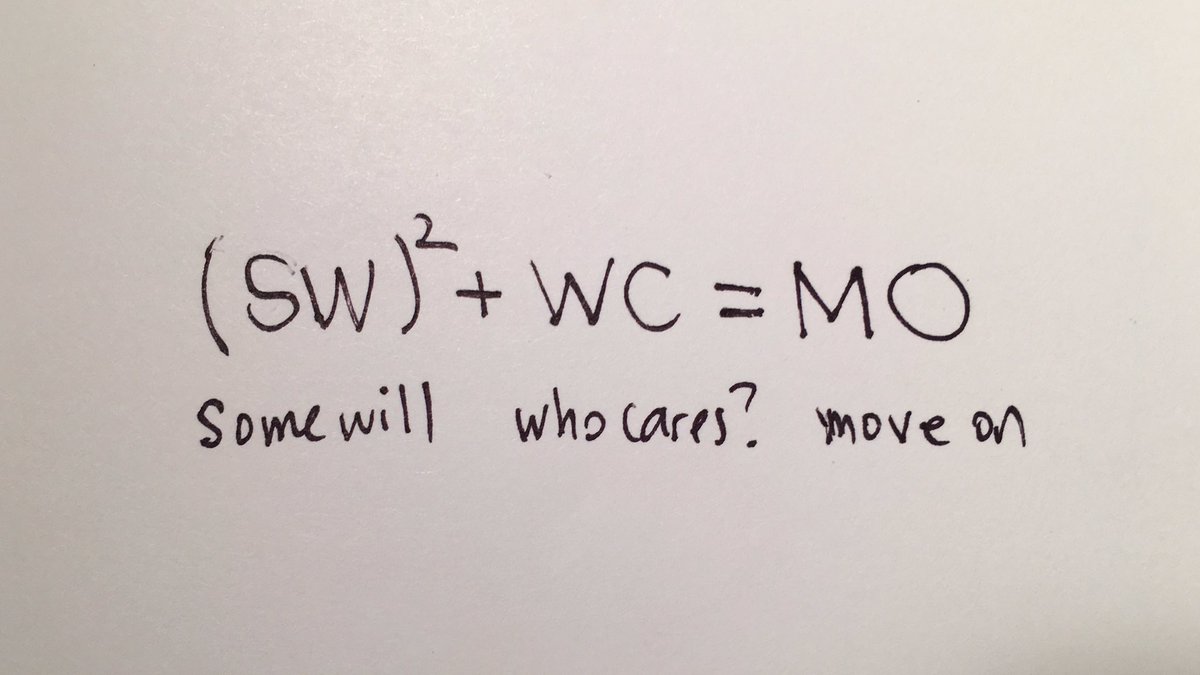 (SW)² + WC = MO
some will who cares? move on